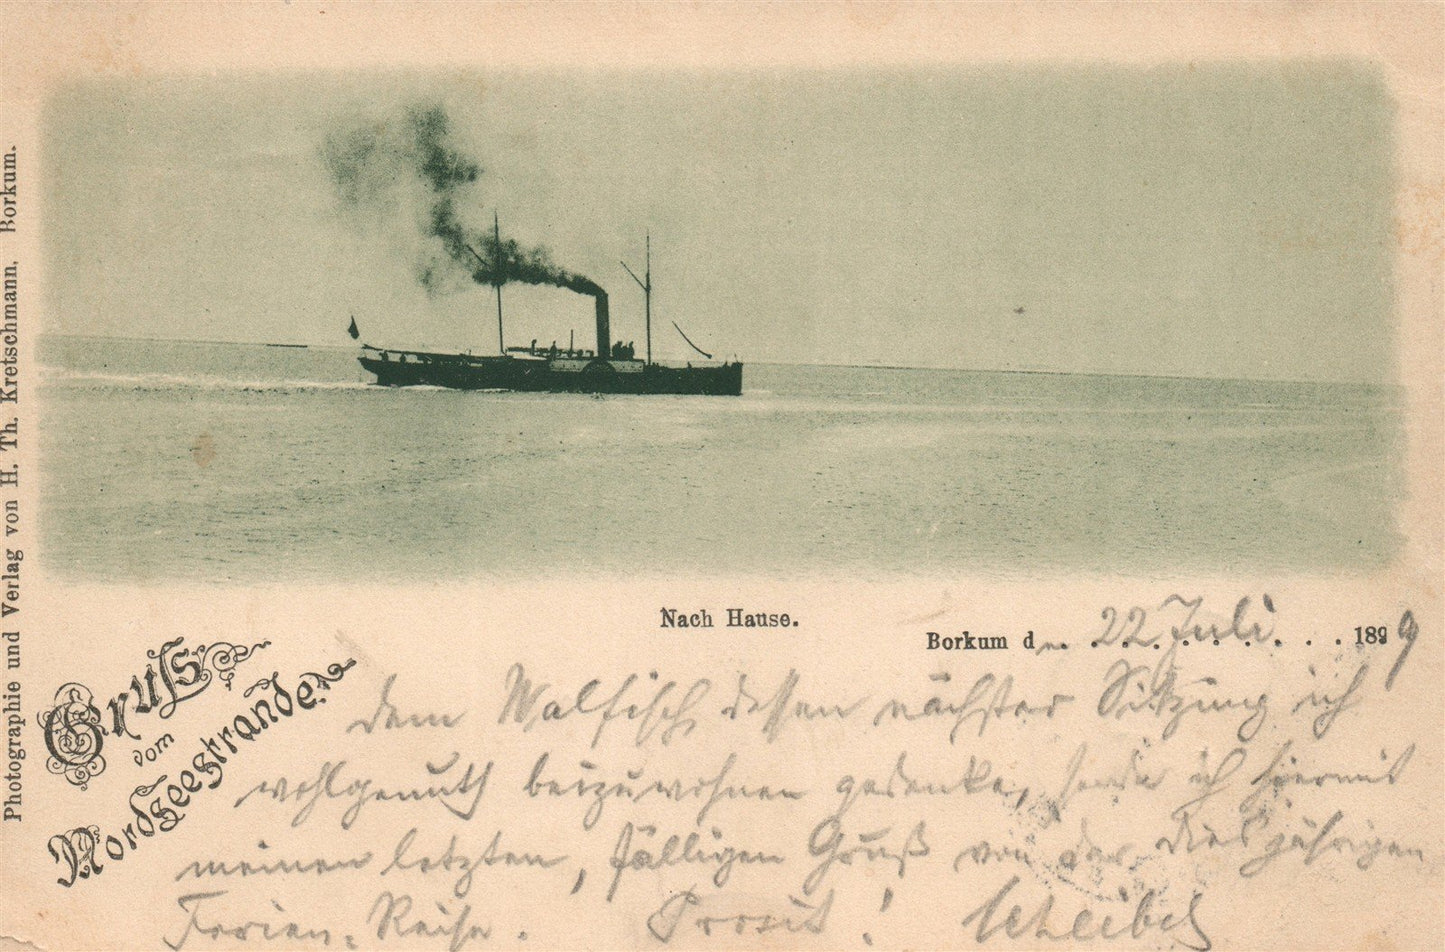 Photographie und Verlag von H. Th. Kretschmann, Borkum.
Nach Hause.
Borkum d. 22 Juli 1899
Gruss
vom
Nordseestrande.
Dem Walfisch dessen nächster Sitzung ich
wohlgemuth beizuwohnen gedenke, sende ich hiermit
meinen letzten, fälligen Gruß von der diesjährigen
Ferien-Reise. Prosit!